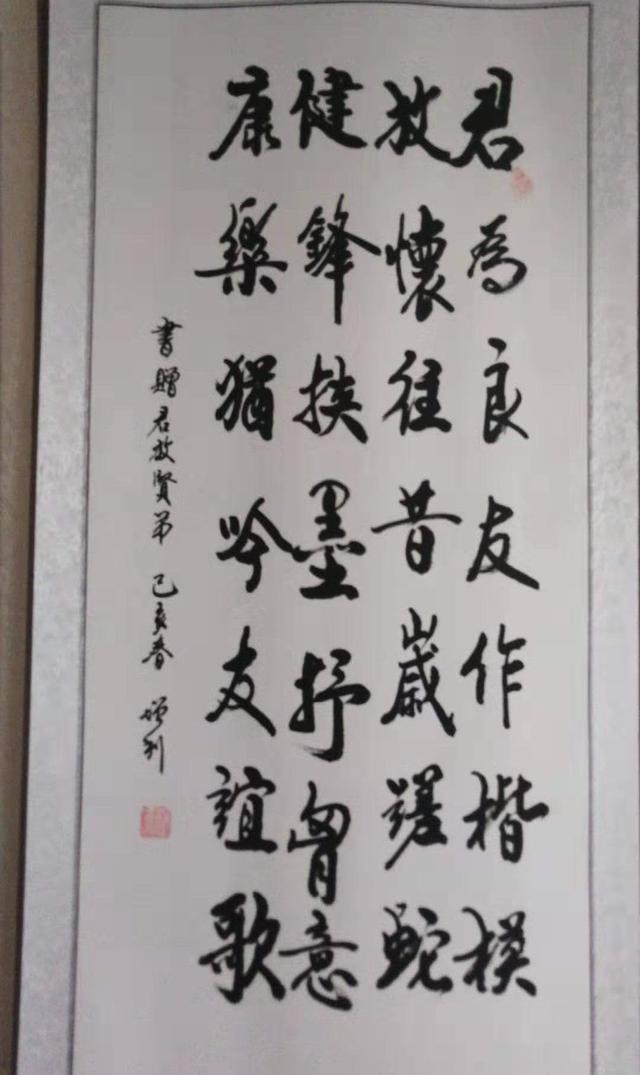 君為良友作楷模
放懷往昔歲蹉蛇
健鋒挾墨抒胷意
康樂猶吟友誼歌
書贈君放賢弟 己亥春 增利